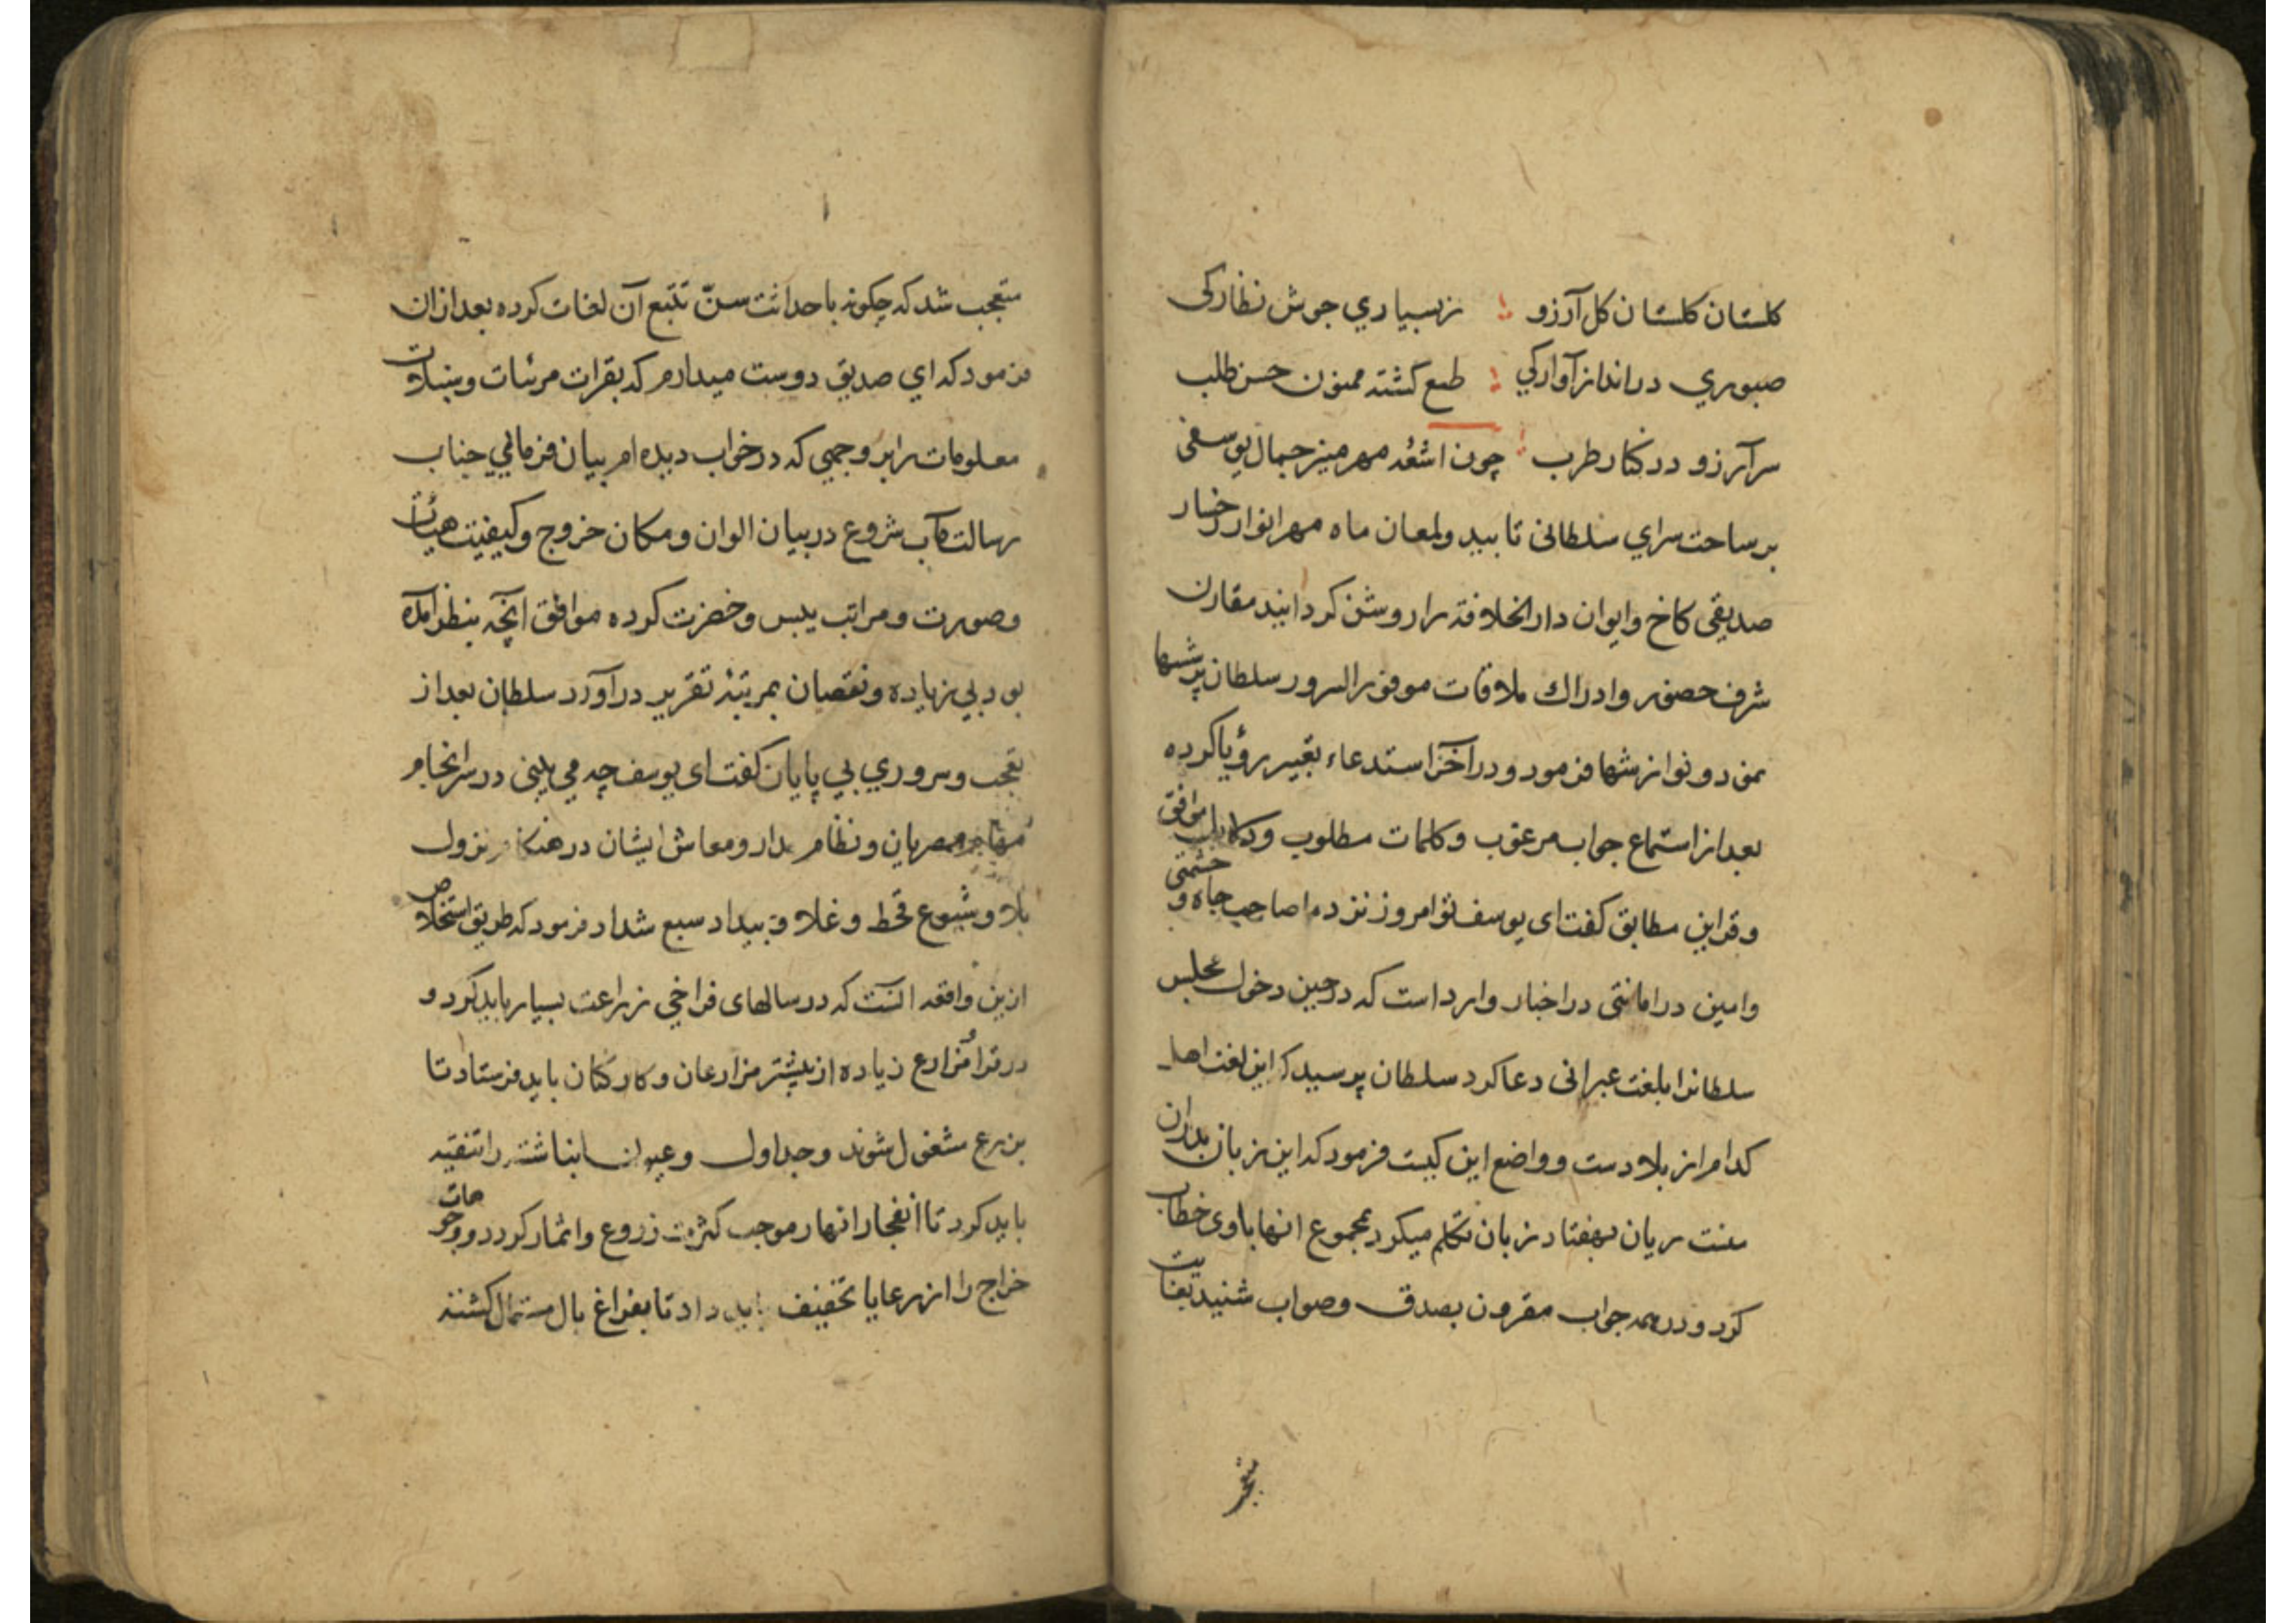 کلستان کلستان کل آرزو ؛ زبسیاري جوش نظارکی
صبوري در انداز آوارکي ؛ طمع کشته ممنون حسن طلب
سر آرزو در کنار طرب ؛ چون اشعّه مهر منیر جمال یوسفی
بر ساحت سراي سلطانی تابید ولمعان ماه مهر انوار رخسار
صدیقی کاخ و ایوان دار الخلافة را روشن کردانید مقارن
شرف حضور و ادراك ملاقات موفور السرور سلطان پرسشها
نمود و نوازشها فرمود و در آخر استدعاء تعبیر رؤیا کرده
بعد از استماع جواب مرغوب و کلمات مطلوب و دلایل موافق
و قراین مطابق کفت ای یوسف تو امروز نزد ما صاحب جاه و حشمتی
وامین در امانتی در اخبار وارد است که در حین دخول مجلس
سلطانرا بلغت عبرانی دعا کرد سلطان پرسید که این لغت اهل
کدام از بلادست و واضع این کیست فرمود که این زبان پدران
منست ریان بهفتاد زبان تکلم میکرد بمجموع انها باوی خطاب
کرد و در همه جواب مقرون بصدق وصواب شنید بغایت
متعجب
متعجب شد که چکونه با حداثت سنّ تتبع آن لغات کرده بعد ازان
فرمود که اي صدیق دوست میدارم که بقرات مرئیات و سنبلات
معلومات را بر وجهي که در خواب دیده ام بیان فرمائي جناب
رسالت مآب شروع در بیان الوان و مکان خروج و کیفیت هیأت
وصورت و مراتب یبس و خضرت کرده موافق انچه بنظر آمده
بود بي زیاده و نقصان بمرتبۀ تقریر در آورد سلطان بعد از
تعجب و سروري بي پایان کفت ای یوسف چه مي بیني در سرانجام
مهام مصریان و نظام مدار و معاش ایشان در هنکام نزول
بلا و شیوع قحط و غلا و بیداد سبع شداد فرمود که طریق استخلاص
ازین واقعه انست که در سالهای فراخي زراعت بسیار باید کرد و
در قرا مزارع زیاده از پیشتر مزارعان و کارکنان باید فرستاد تا
بزرع مشغول شوند وجداول وعیون انباشته را تنقیه
باید کرد تا انفجار انهار موجب کثرت زروع و اثمار کردد و وجوهات
خراج را از رعایا تخفیف باید داد تا بفراغ بال مستمال کشته